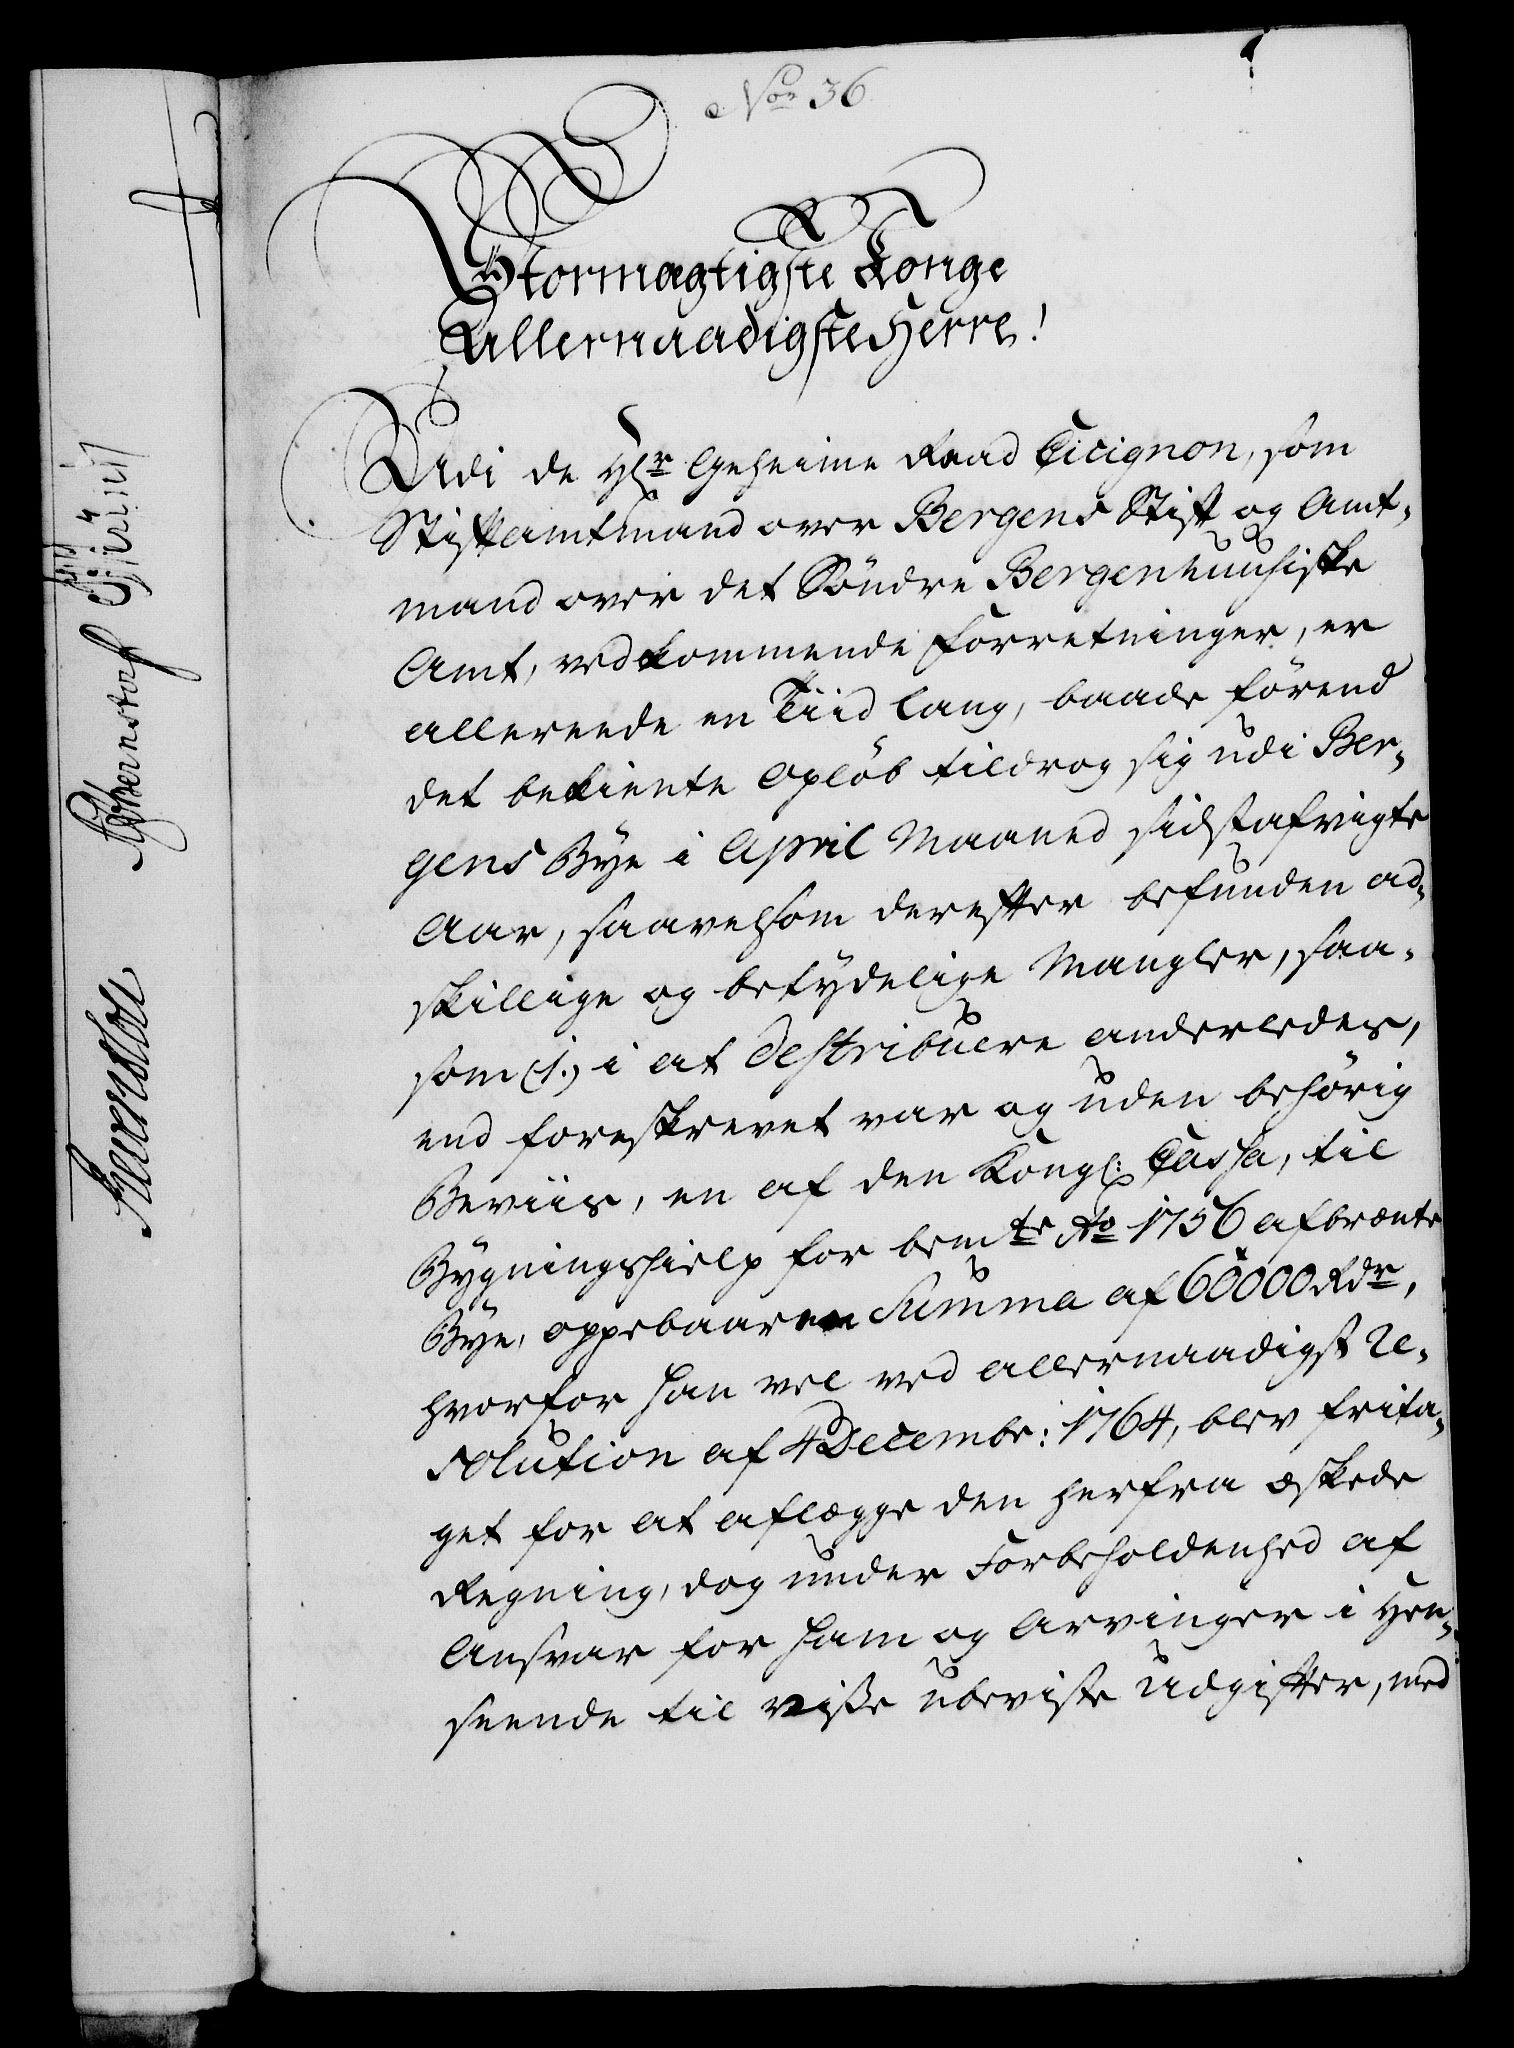 No 36
Stormægtigste Konge
Allernaadigste Herre!
Udi de Hr Geheime Raad Cicignon, som
Stiftamtmand over Bergens Stift og Amt-
mand over det Söndre Bergenhuusiske
Amt, vedkommende Forretninger, er
allereede en Tiid lang, baade förend
det bekiente Oplöb tildrog sig udi Ber-
gens Bye i April Maaned sidstafvigte
Aar, saavelsom derefter befunden ad-
skillige og betydelige Mangler, saa-
som (1.) i at destribuere anderledes,
end foreskrevet var og uden behörig
Beviis, en af den Kongl: Cassa, til
Bygningshielp for bemte Ao 1756 afbrænte
Bye, oppebaaren Summa af 60000 Rdr,
hvorfor han vel ved allernaadigst Re-
solution af 4 Decembr: 1764, blev frita-
get for at aflægge den herfra æskede
Regning, dog under Forbeholdenhed af
Ansvar for ham og Arvinger i Hen-
seende til visse ubeviste Udgifter, med